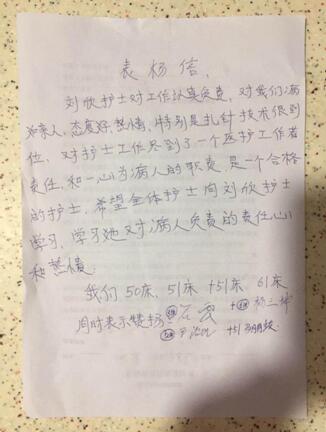 表扬信,
刘欣护士对工作认真负责,对我们病
如亲人,态度好,热情,特别是扎针技术很到
位,对护士工作尽到了一个医护工作者
责任,和一心为病人的职责,是一个合格
的护士,希望全体护士向刘欣护士
学习,学习她对病人负责的责任心
和热情
我们50床,51床+51床 61床
同时表示赞扬
+51